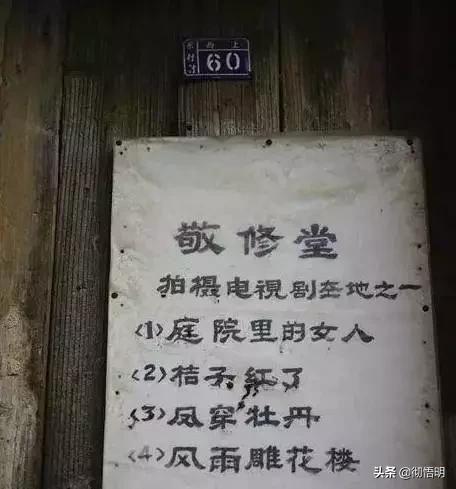 东村 西上
60
敬修堂
拍摄电視剧基地之一
(1)庭院里的女人
(2)桔子红了
(3)凤穿牡丹
(4)风雨雕花楼
头条 @彻悟明